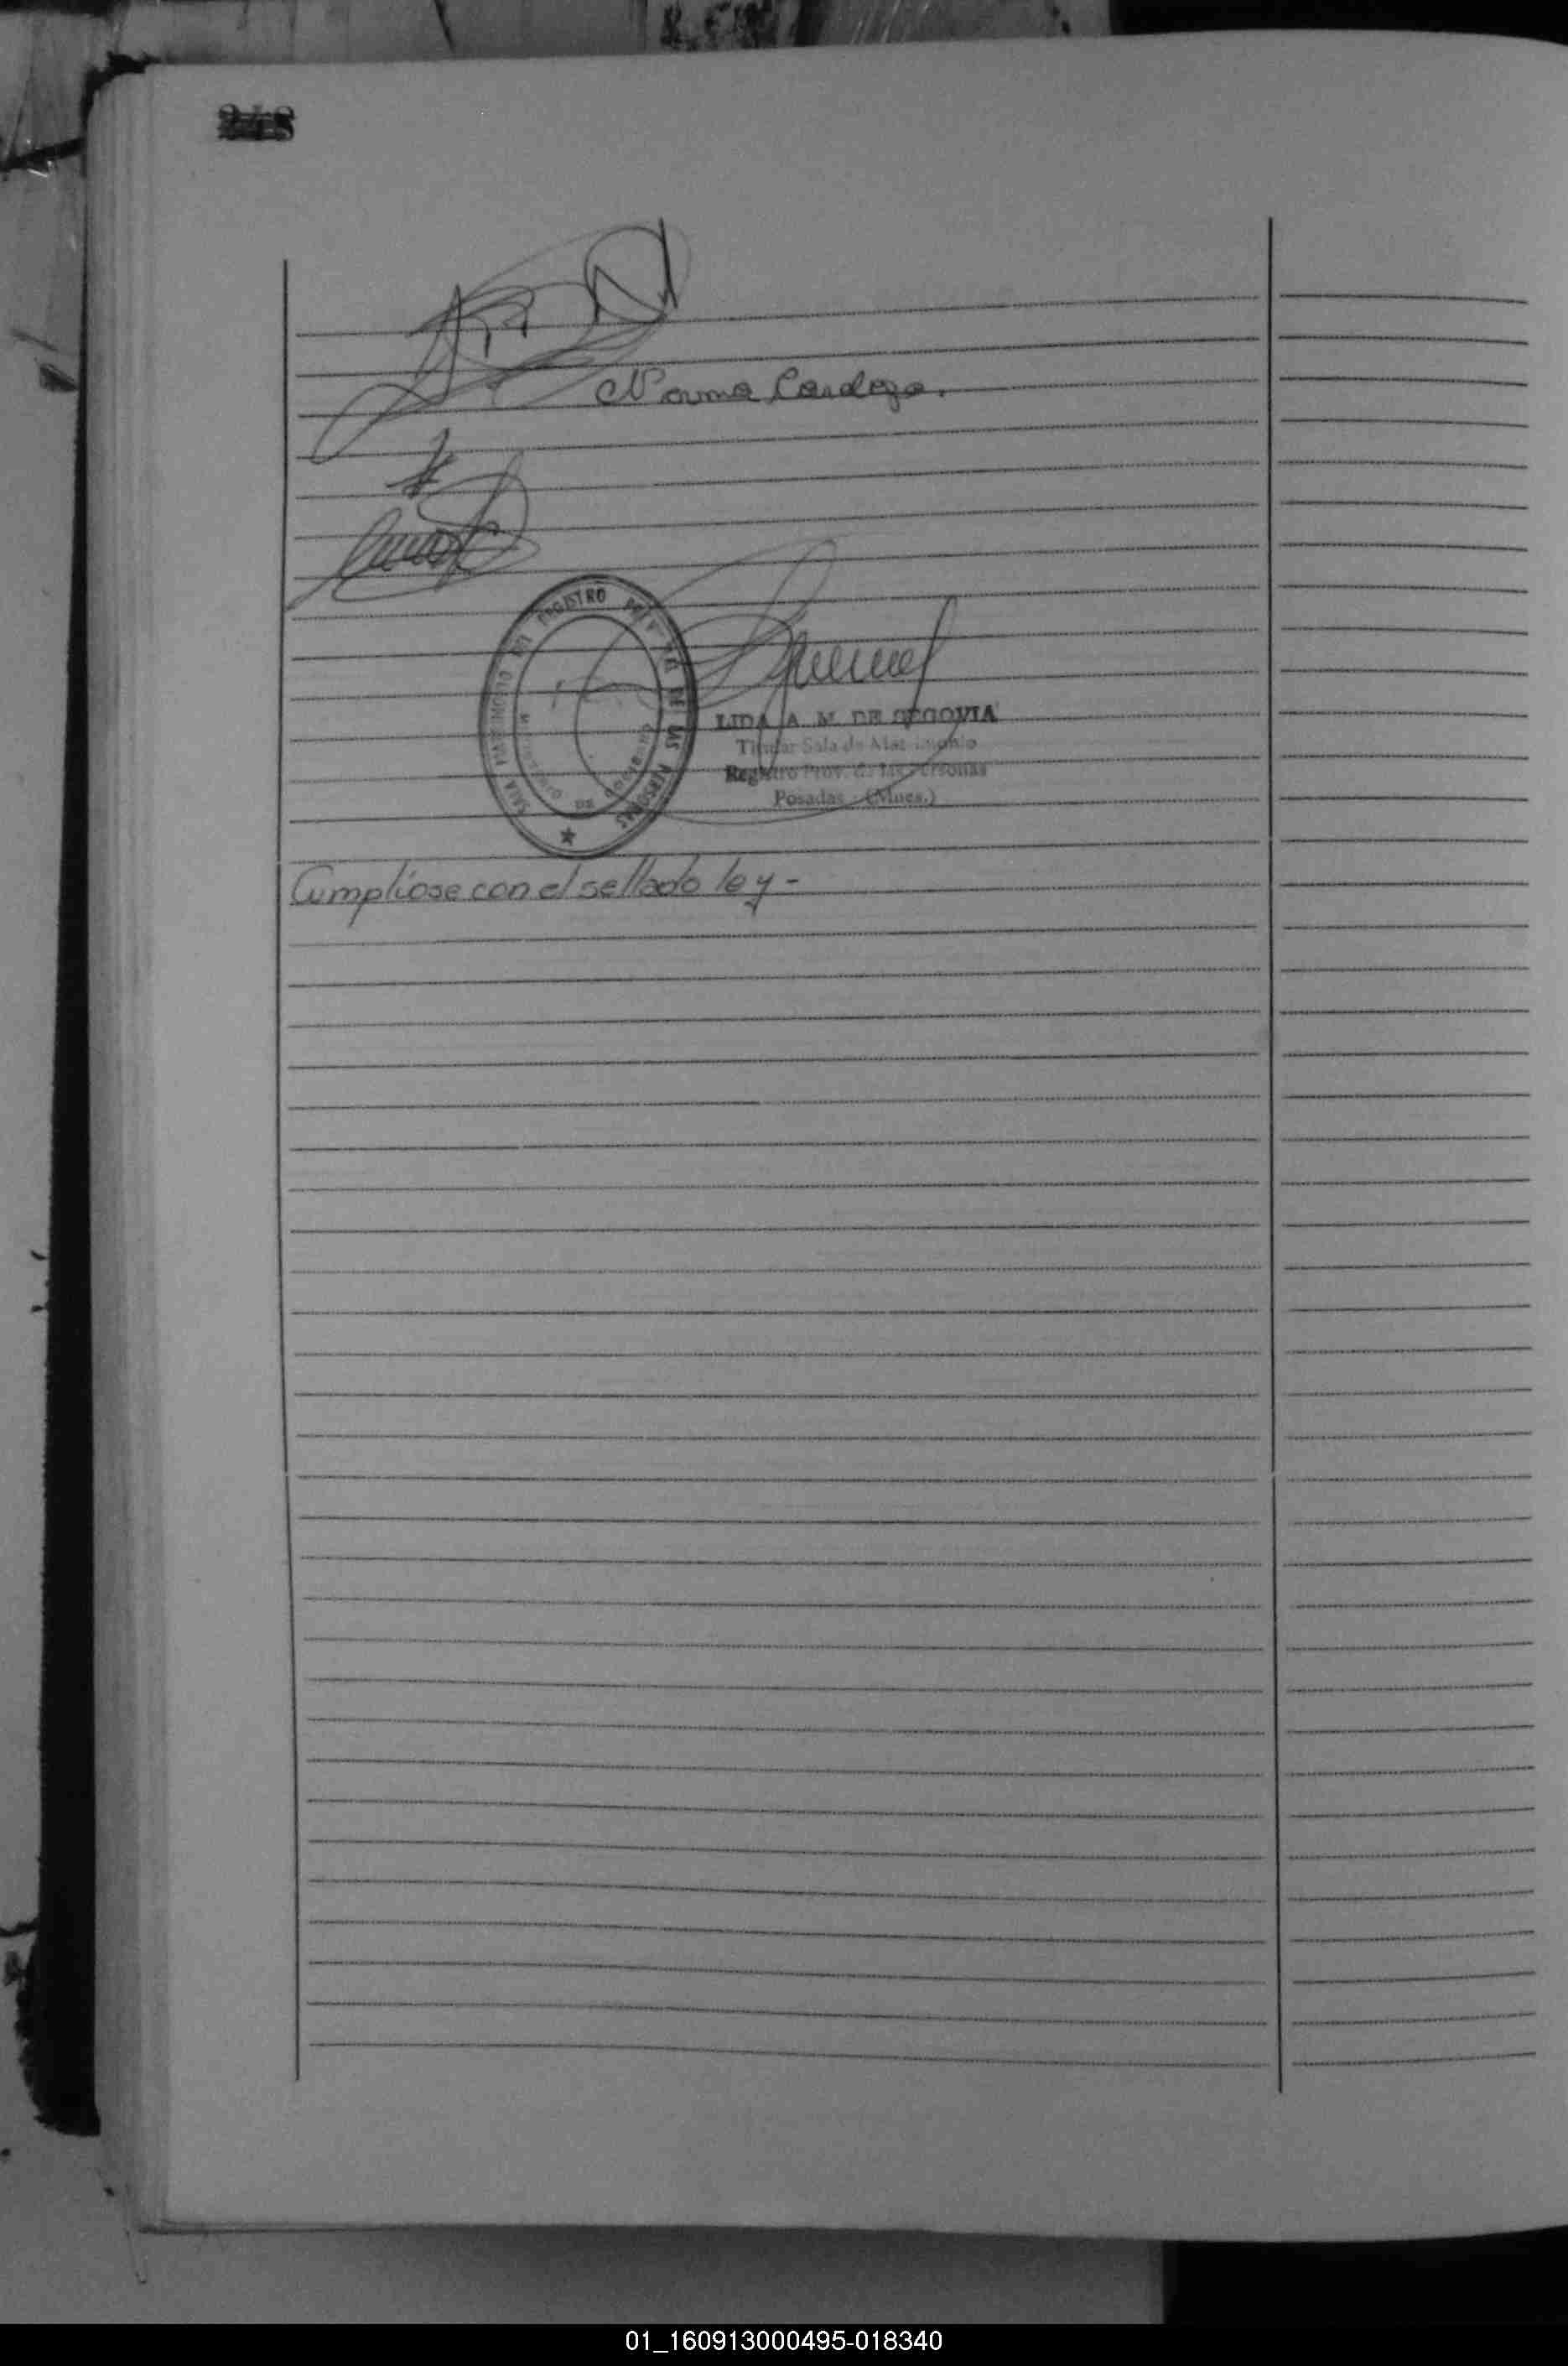 248
Norma Cardozo.
SALA MATRIMONIO DEL REGISTRO PROVINCIAL DE LAS PERSONAS
LIDA A. M. DE SEGOVIA
Titular Sala de Matrimonio
Registro Prov. de las Personas
Posadas - (Mnes.)
Cumpliose con el sellado ley -
01_160913000495-018340